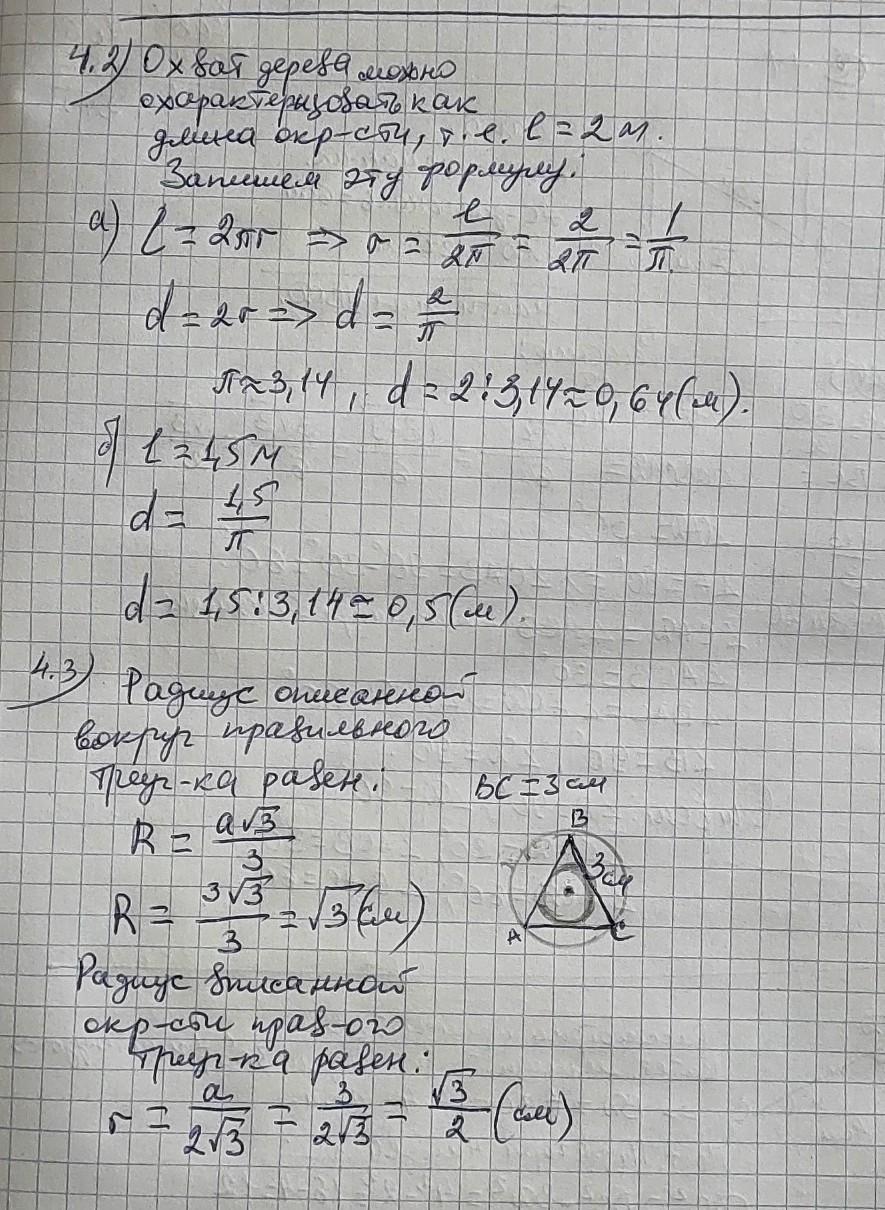 4.2) Охват дерева можно
охарактеризовать как
длина окр-сти, т.е. l = 2 м.
Запишем эту формулу:
а) l = 2πr => r = l/2π = 2/2π = 1/π.
d = 2r => d = 2/π
π ≈ 3,14, d = 2 : 3,14 ≈ 0,64 (м).
б) l = 1,5 м
d = 1,5/π
d = 1,5 : 3,14 ≈ 0,5 (м).
4.3) Радиус описанной
вокруг правильного
треуг-ка равен:
BC = 3 см
B
3 см
A
C
R = a√3/3
R = 3√3/3 = √3 (см)
Радиус вписанной
окр-сти прав-ого
треуг-ка равен:
r = a/2√3 = 3/2√3 = √3/2 (см)